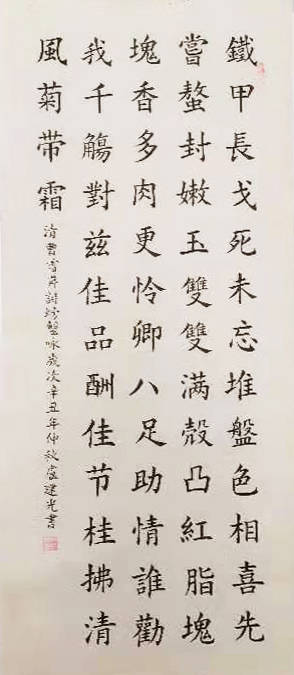 鐵甲長戈死未忘堆盤色相喜先
嘗螯封嫩玉雙雙满殼凸紅脂塊
塊香多肉更怜卿八足助情誰勸
我千觴對兹佳品酬佳节桂拂清
風菊带霜
清曹雪芹詩螃蟹咏歲次辛丑年仲秋盧建光書